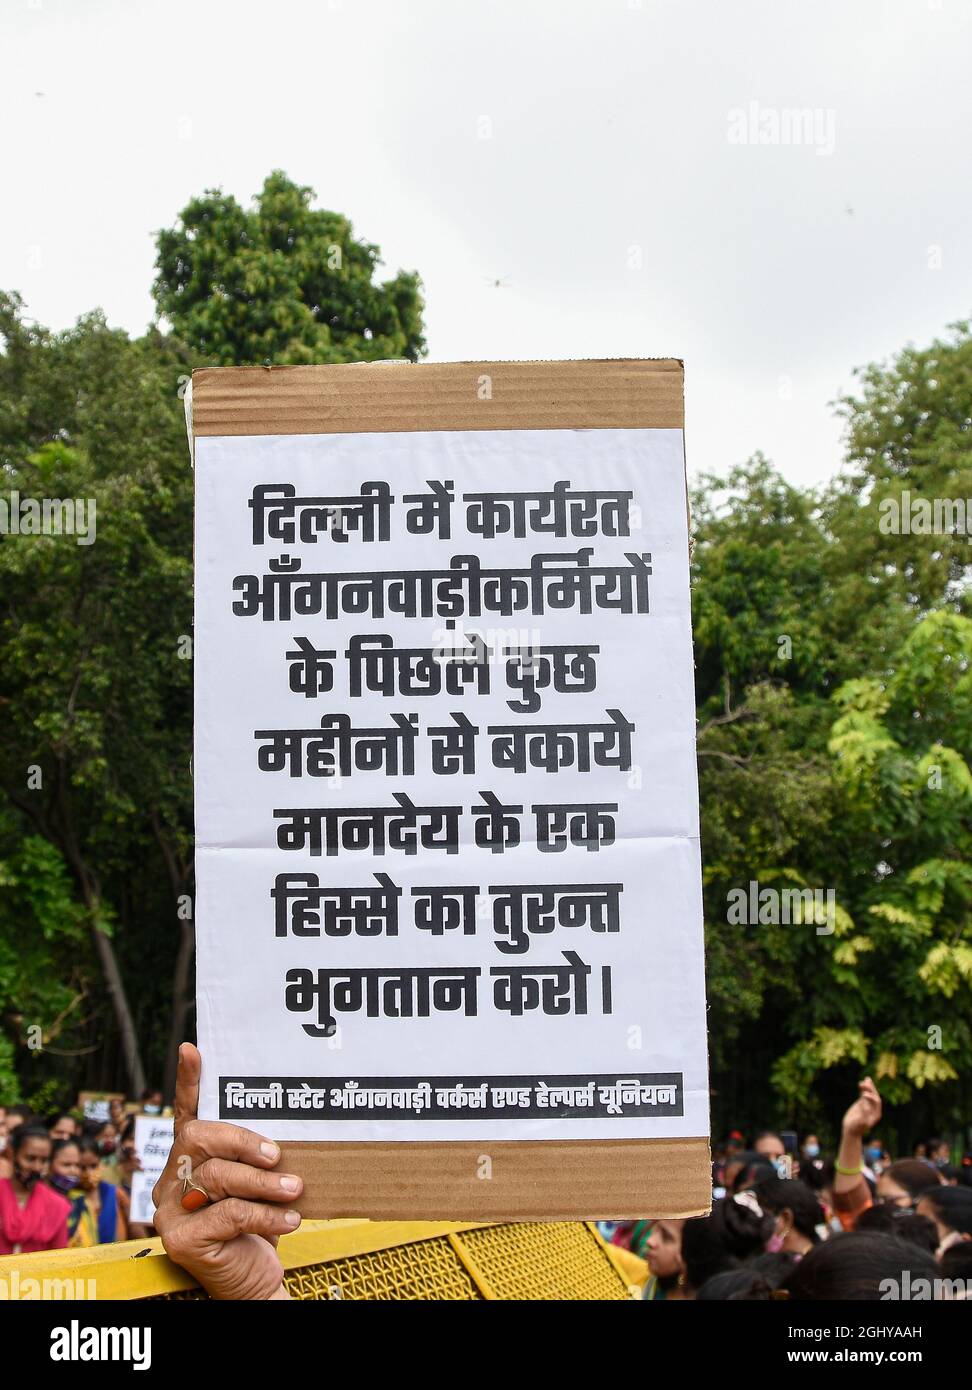 दिल्ली में कार्यरत
आँगनवाड़ीकर्मियों
के पिछले कुछ
महीनों से बकाये
मानदेय के एक
हिस्से का तुरन्त
भुगतान करो।
दिल्ली स्टेट आँगनवाड़ी वर्कर्स एण्ड हेल्पर्स यूनियन
alamy
alamy
Image ID: 2GHYAAH
www.alamy.com